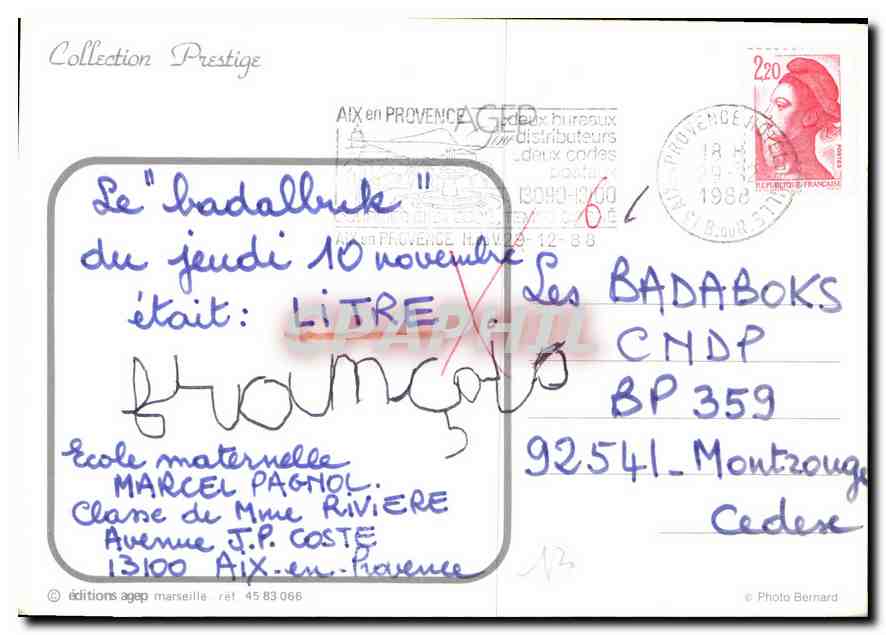 Collection Prestige
2,20
REPUBLIQUE FRANÇAISE
POSTES
AIX en PROVENCE AGEP
deux bureaux
distributeurs
deux codes
AIX en PROVENCE H.D.V. 29-12-88
18 H
29-12
1988
Le "badalbuk"
du jeudi 10 novembre
était : LiTRE
françois
Ecole maternelle
MARCEL PAGNOL.
Classe de Mme RiViERE
Avenue J.P. COSTE
13100 AIX-en-Provence
6
Les BADABOKS
CNDP
BP 359
92541_Montrouge
Cedex
SPAPHIL
13
© éditions agep marseille réf. 45 83 066
© Photo Bernard